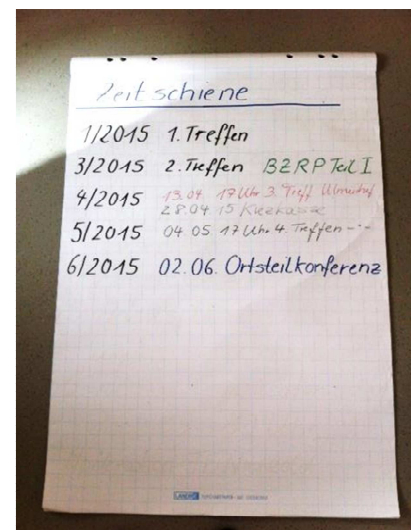 Zeitschiene
1/2015 1. Treffen
3/2015 2. Treffen BZRP Teil I
4/2015 13.04. 17 Uhr 3. Treff
28.04.15
5/2015 04.05. 17 Uhr 4. Treffen ---
6/2015 02.06. Ortsteilkonferenz
LANDRÉ